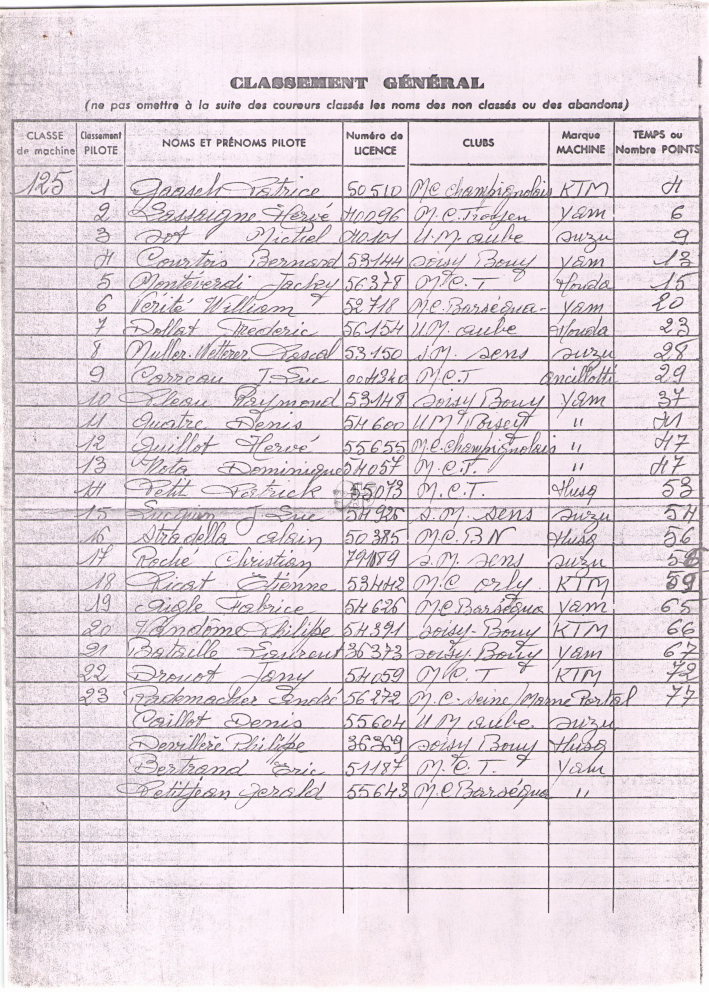 CLASSEMENT GÉNÉRAL
(ne pas omettre à la suite des coureurs classés les noms des non classés ou des abandons)
CLASSE de machine Classement PILOTE NOMS ET PRÉNOMS PILOTE Numéro de LICENCE CLUBS Marque MACHINE TEMPS ou Nombre POINTS
125 1 Gaasch Patrice 50510 M.C champignolais KTM 4
2 Lassaigne Hervé 40096 M.C. Troyen yam 6
3 Michel 40101 U.M. aube suzu 9
4 Courtois Bernard 53144 soisy Bouy yam 13
5 Montéverdi Jacky 56378 M.C.T Honda 15
6 Vérité William 52718 M.C. Barséqua- yam 20
7 Dollat Mederic 56154 UM. aube Honda 23
8 Muller-Wetterer Pascal 53150 S.M. sens suzu 28
9 Carreau J-Luc M.C.T ancillotti 29
10 Pleau Raymond 53148 soisy Bouy yam 37
11 Quatre Denis 54600 U M " 41
12 Guillot Hervé 55655 M.C. champignolais " 47
13 Nota Dominique 54057 M.C.T. " 47
14 Petit Patrick 55073 M.C.T. Husq 53
15 Lucquin J-Luc 54925 S.M. sens suzu 54
16 Stradella alain 50385 M C. B N Husq 56
17 Roché Christian S.M. sens suzu
18 Ricat Etienne 53442 M.C orly KTM 59
19 aigle Fabrice 54626 M.C Barséqua yam 65
20 Vandôme Philippe 54391 soisy-Bouy KTM 66
21 Bataille Laurent 36373 soisy Bouy yam 67
22 Drouot Jany 54059 M.C.T KTM 72
23 Rademacher André 56272 M.C-seine/Marne Portal 77
Caillot Denis 55604 U M aube. suzu
Devillère Philippe 36369 soisy Bouy Husq
Bertrand Eric 51187 M.C.T. yam
Petitjean gerald 55643 M.C Barséqua "